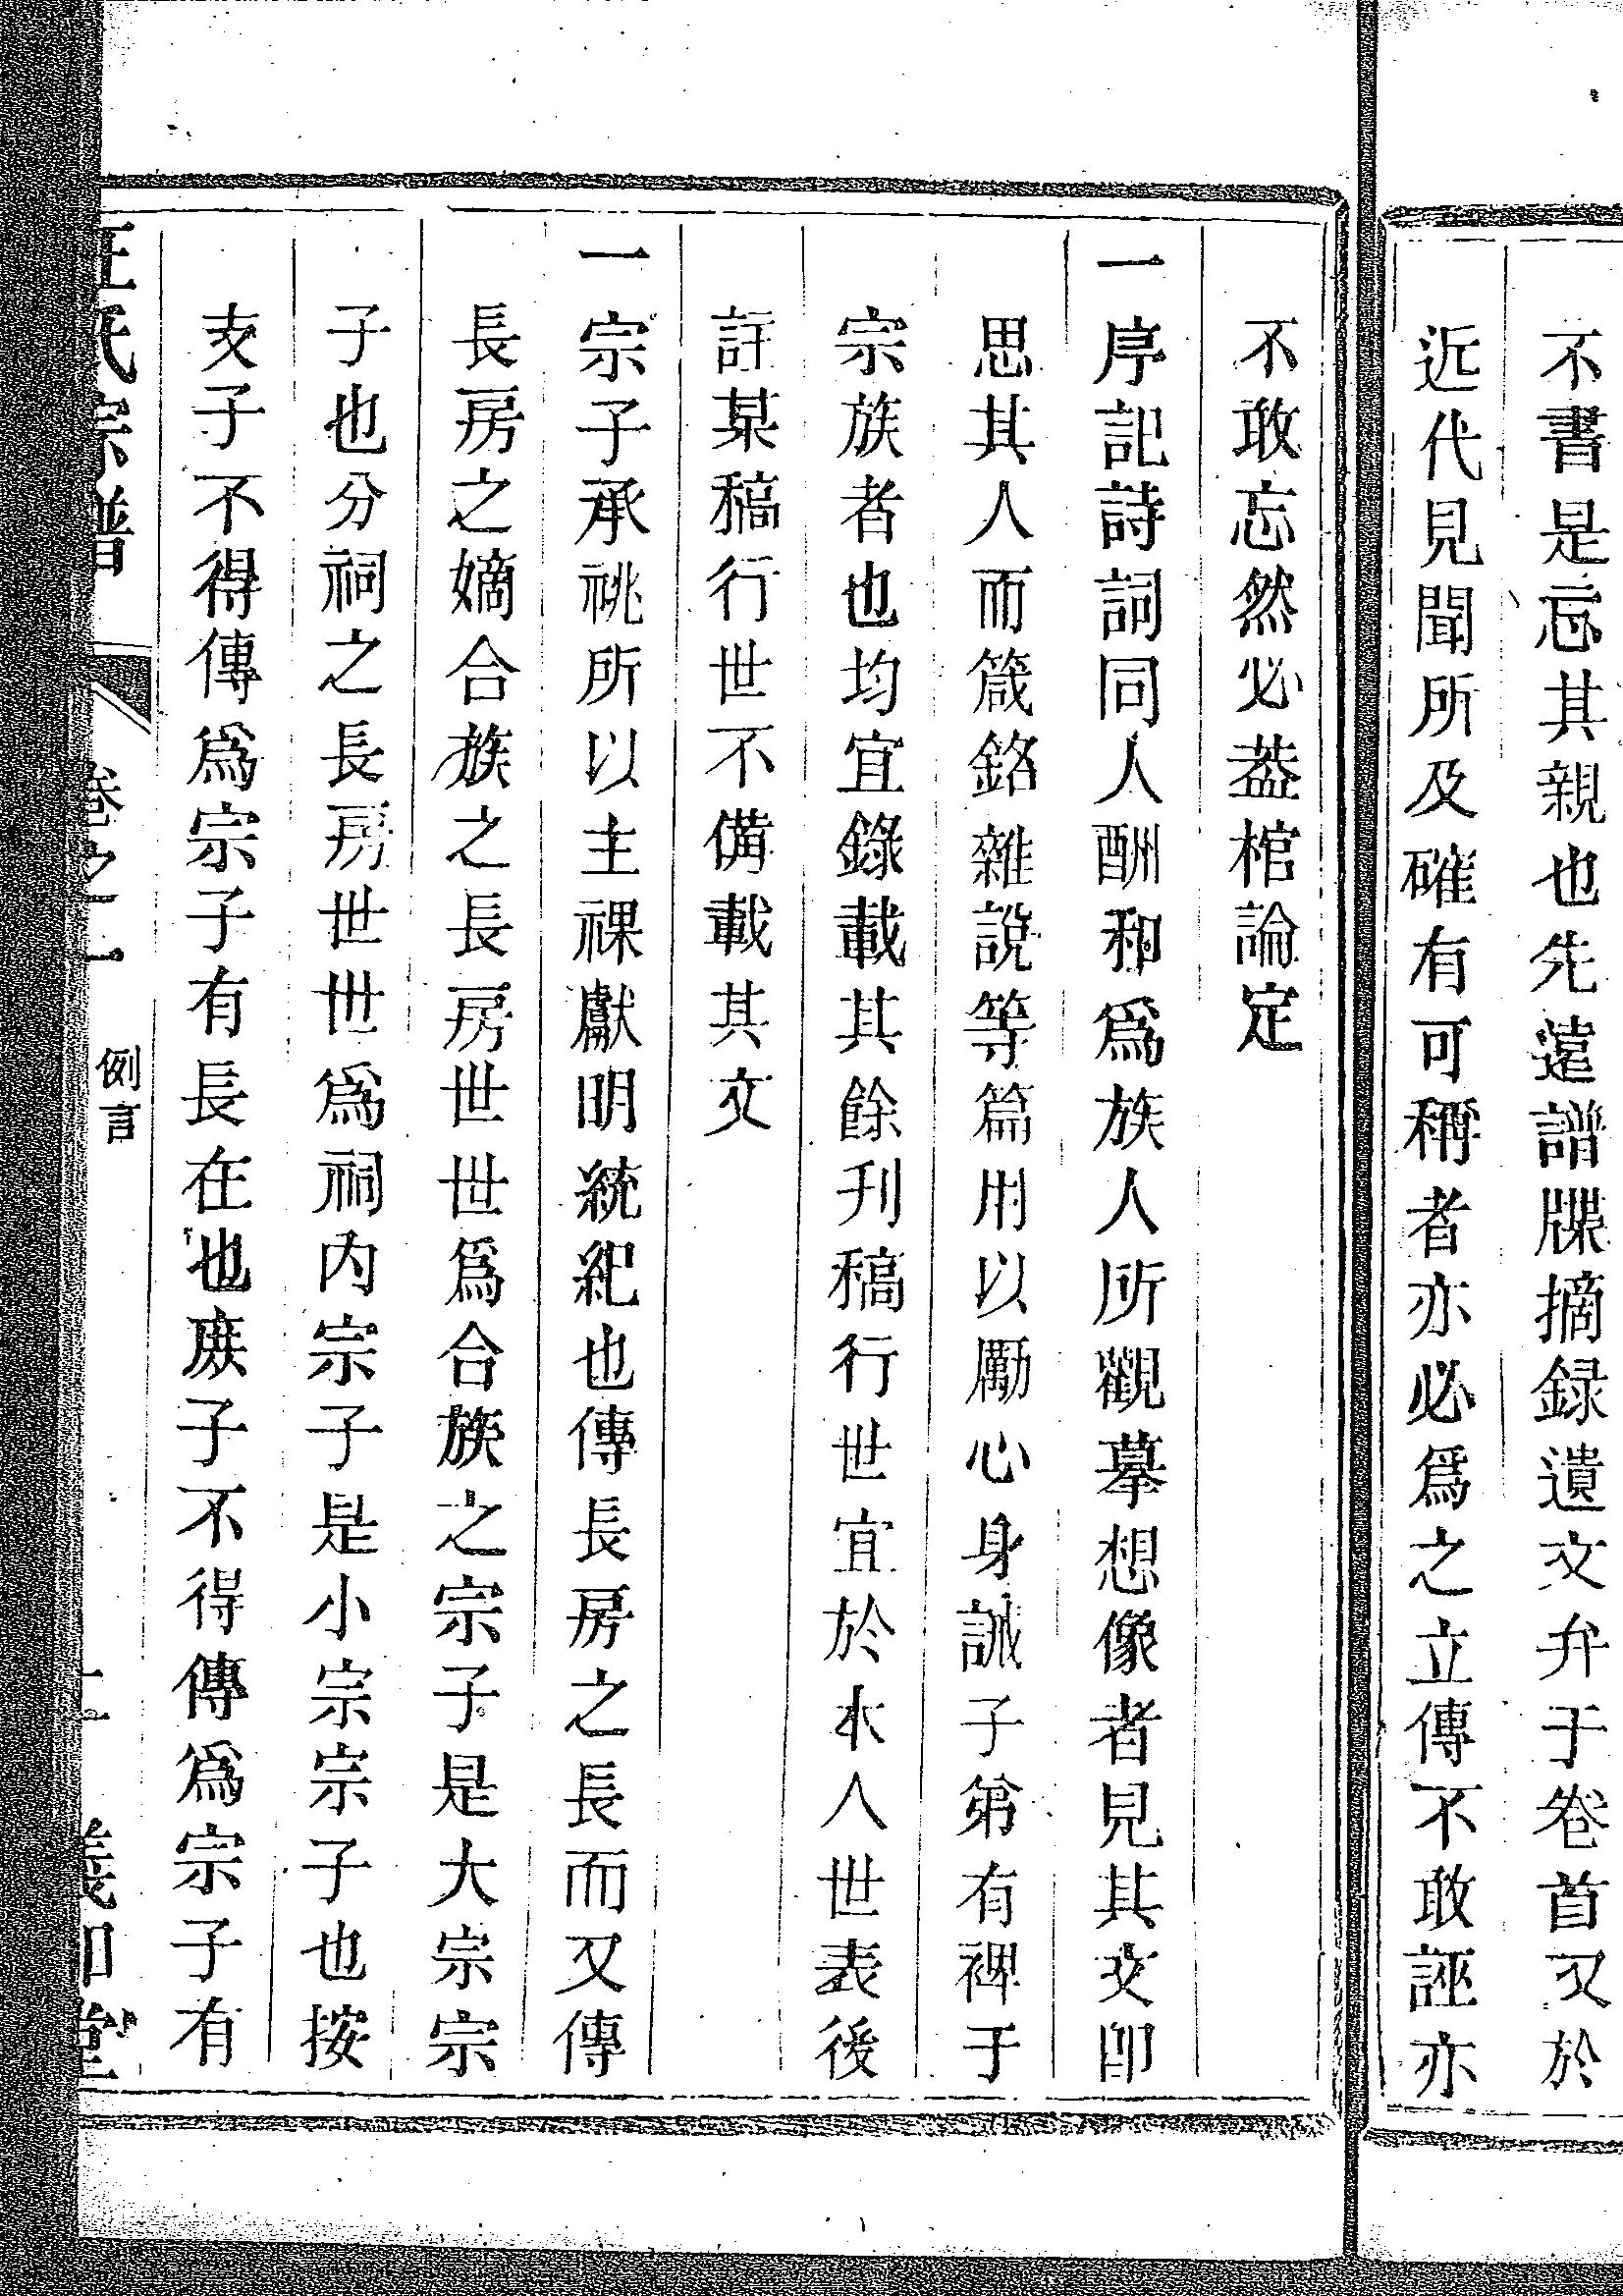 不書是忘其親也先遠譜牒摘録遺文弁于卷首又於
近代見聞所及確有可稱者亦必爲之立傳不敢誣亦
不敢忘然必葢棺論定
一序記詩詞同人酬和爲族人所觀摹想像者見其文卽
思其人而箴銘雜說等篇用以勵心身誡子弟有裨于
宗族者也均宜錄載其餘刊稿行世宜於本人世表後
註某稿行世不備載其文
一宗子承祧所以主祼獻明統紀也傳長房之長而又傳
長房之嫡合族之長房世世爲合族之宗子是大宗宗
子也分祠之長房世世爲祠内宗子是小宗宗子也按
支子不得傳爲宗子有長在也庶子不得傳爲宗子有
氏宗譜
卷之二
例言
義和堂